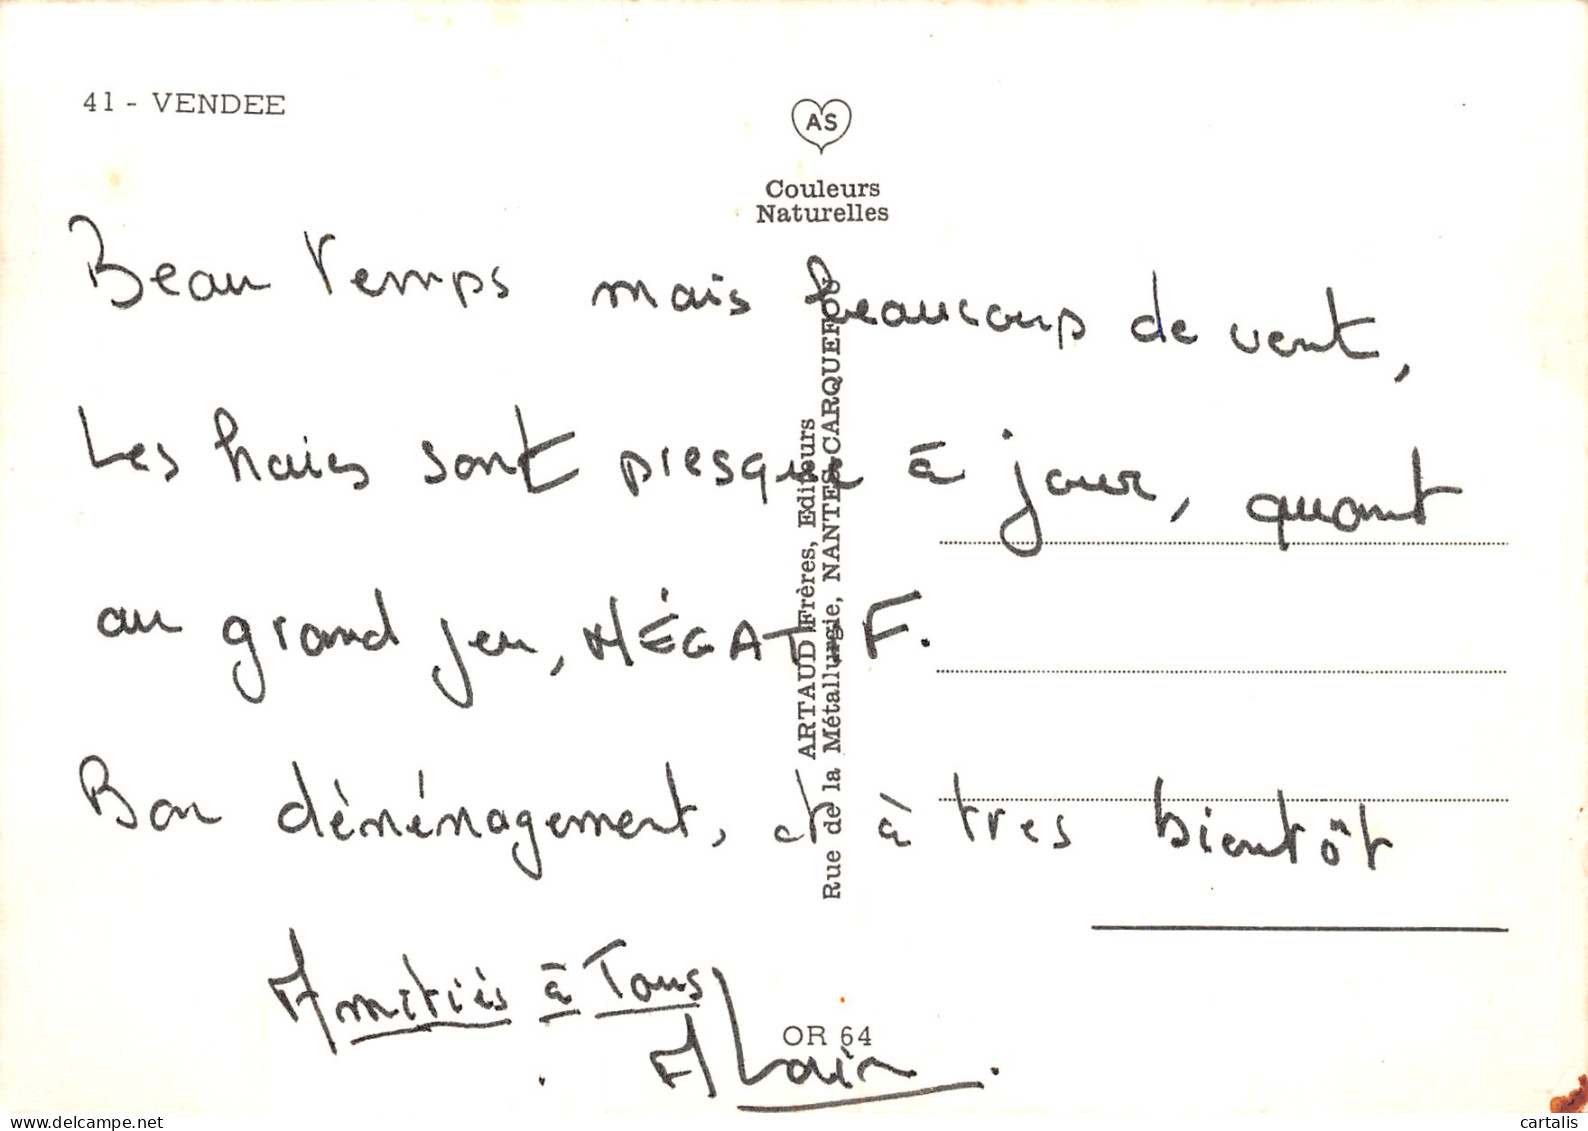 41 - VENDEE
AS
Couleurs
Naturelles
Beau temps mais beaucoup de vent,
Les haies sont presque à jour, quant
au grand jeu, NÉGATIF.
Bon déménagement, et à tres bientôt
Amitiés à Tous
Alain.
ARTAUD Frères, Editeurs
Rue de la Métallurgie, NANTES-CARQUEFOU
OR 64
www.delcampe.net
cartalis